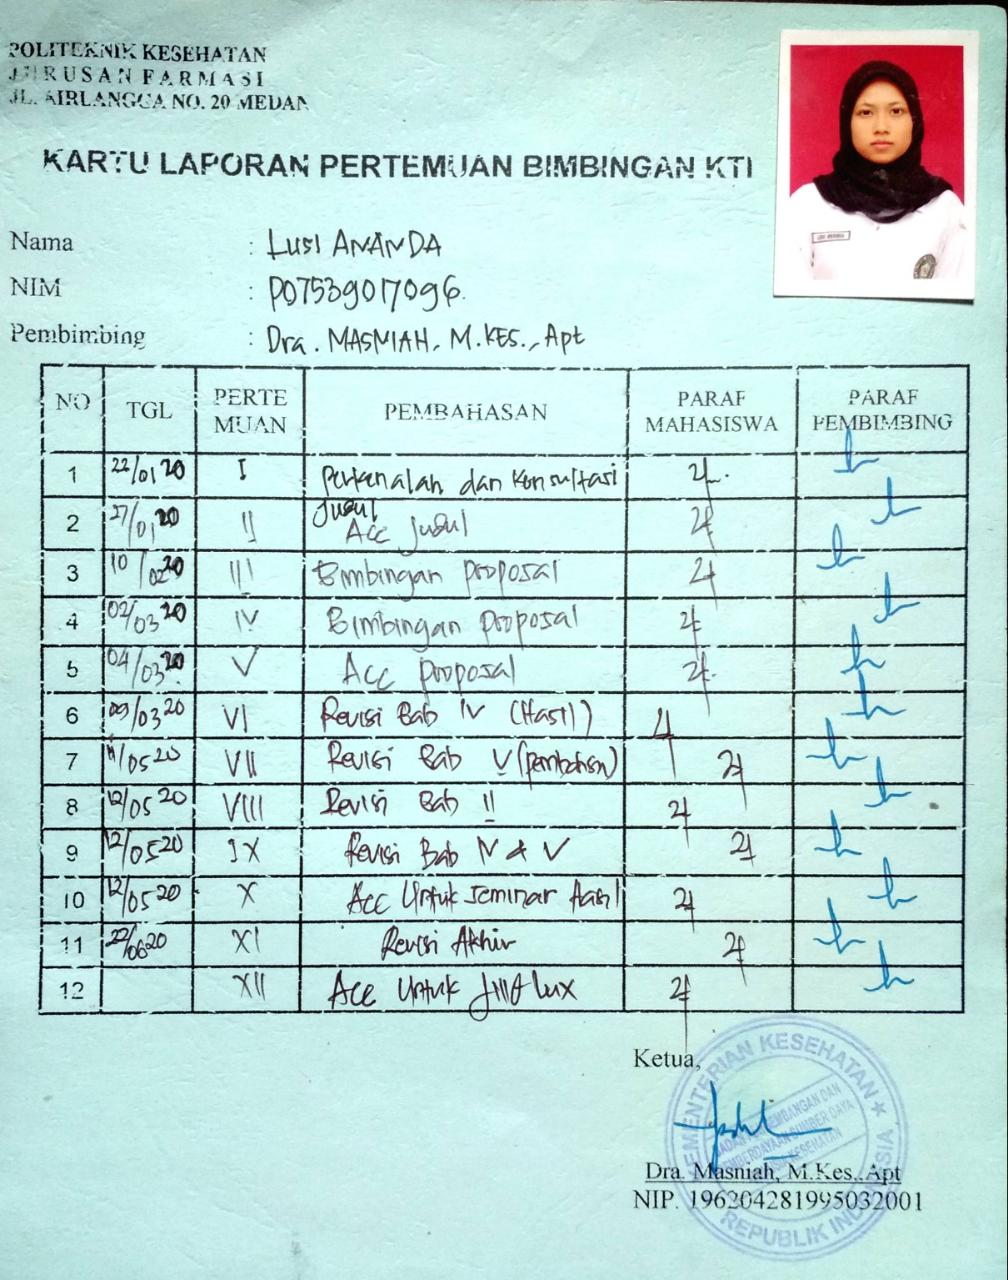 POLITEKNIK KESEHATAN
JURUSAN FARMASI
JL. AIRLANGGA NO. 20 MEDAN
KARTU LAPORAN PERTEMUAN BIMBINGAN KTI
Nama : LUSI ANANDA
NIM : P07539017096.
Pembimbing : Dra. MASNIAH, M.KES., Apt
NO TGL PERTE MUAN PEMBAHASAN PARAF MAHASISWA PARAF PEMBIMBING
1 22/01 20 I Perkenalan dan Konsultasi Judul
2 27/01 20 II Acc Judul
3 10/02 20 III Bimbingan Proposal
4 02/03 20 IV Bimbingan Proposal
5 04/03 20 V Acc proposal
6 09/03 20 VI Revisi Bab IV (Hasil)
7 11/05 20 VII Revisi Bab V (pembahasan)
8 12/05 20 VIII Revisi Bab II
9 12/05 20 IX Revisi Bab IV & V
10 12/05 20 X Acc Untuk Seminar Hasil
11 22/06 20 XI Revisi Akhir
12 XII Acc Untuk Jilid Lux
Ketua,
KEMENTERIAN KESEHATAN
REPUBLIK INDONESIA
Dra. Masniah, M.Kes., Apt
NIP. 196204281995032001